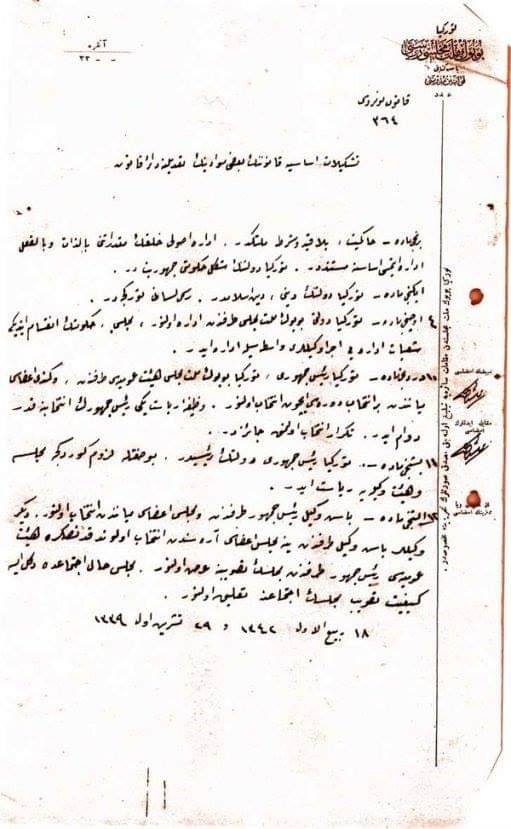 توركيا
بويوك ملت مجلسى
آنقره
قانون نومروسى
٣٦٤
تشكيلات اساسيه قانوننك بعض موادينك تعديلنه دائر قانون
برنجى ماده — حاكميت، بلا قيد و شرط ملتكدر. اداره اصولى خلقك مقدراتنى بالذات و بالفعل
اداره ايتمسى اساسنه مستنددر. توركيا دولتنك شكل حكومتى جمهوريت در.
ايكنجى ماده — توركيا دولتنك دينى، دين اسلامدر. رسمى لسانى توركجه در.
توركيا دولتى بويوك ملت مجلسى طرفندن اداره اولنور. مجلس، حكومتك انقسام ايتديكى
شعبات اداره يى اجرا وكيللرى واسطه سيله اداره ايدر.
توركيا رئيس جمهورى، توركيا بويوك ملت مجلسى هيئت عموميه سى طرفندن و كندى اعضاسى
ميانندن بر انتخاب دوره سى ايچون انتخاب اولنور. وظيفه رياست يكى رئيس جمهورك انتخابنه قدر
دوام ايدر. تكرار انتخاب اولنمق جائزدر.
توركيا رئيس جمهورى دولتك رئيسيدر. بو صفتله لزوم كوردكجه مجلسه
و هيئت وكيله يه رياست ايدر.
باش وكيل رئيس جمهور طرفندن و مجلس اعضاسى ميانندن انتخاب اولنور. ديكر
وكيللر باش وكيل طرفندن ينه مجلس اعضاسى آره سندن انتخاب اولوندقدنصكره هيئت
عموميه سى رئيس جمهور طرفندن مجلسك تصويبنه عرض اولنور. مجلس حال اجتماعده دكل ايسه
كيفيت تصويب مجلسك اجتماعنه تعليق اولنور.
١٨ ربيع الاول ١٣٤٢ و ٢٩ تشرين اول ١٣٣٩